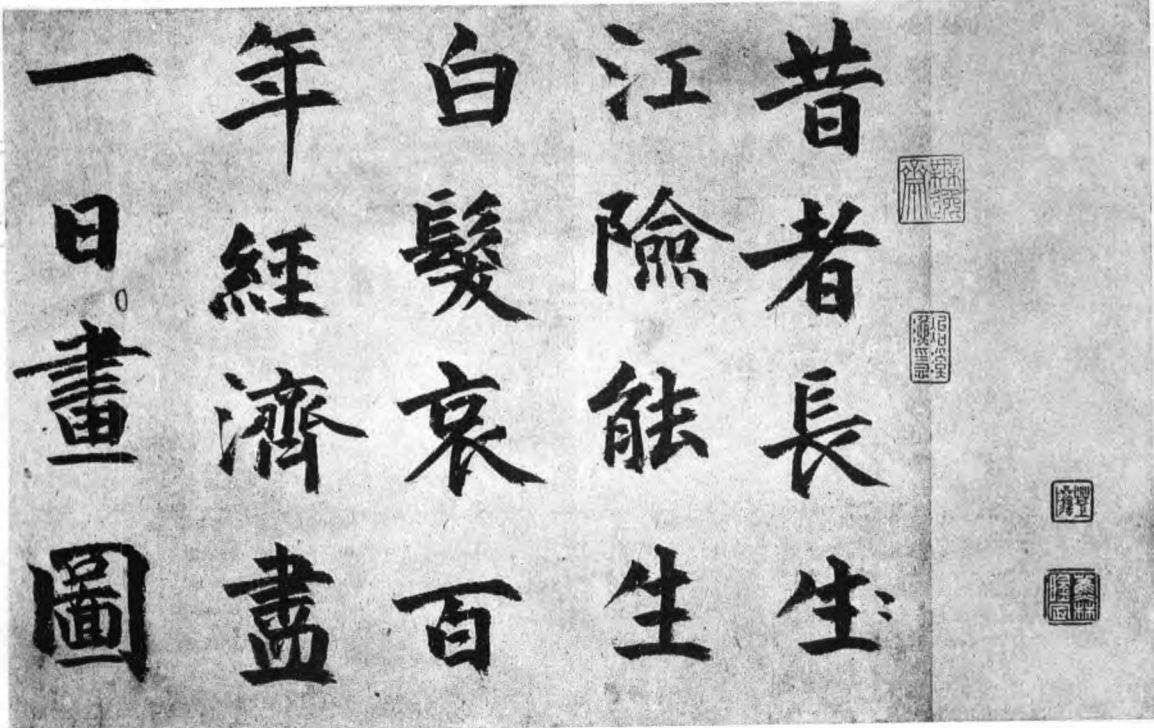 昔者長生
江險能生
白髮哀百
年經濟盡
一日畫圖